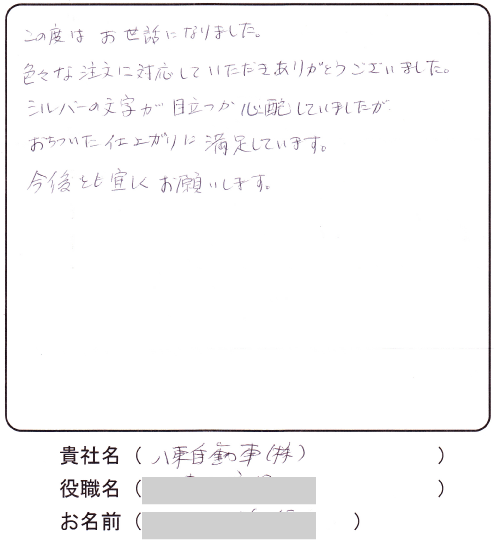 この度は お世話になりました。
色々な注文に対応していただきありがとうございました。
シルバーの文字が目立つか心配していましたが
おちついた仕上がりに満足しています。
今後とも宜しくお願いします。
貴社名（ 八車自動車(株) ）
役職名（ ）
お名前（ ）